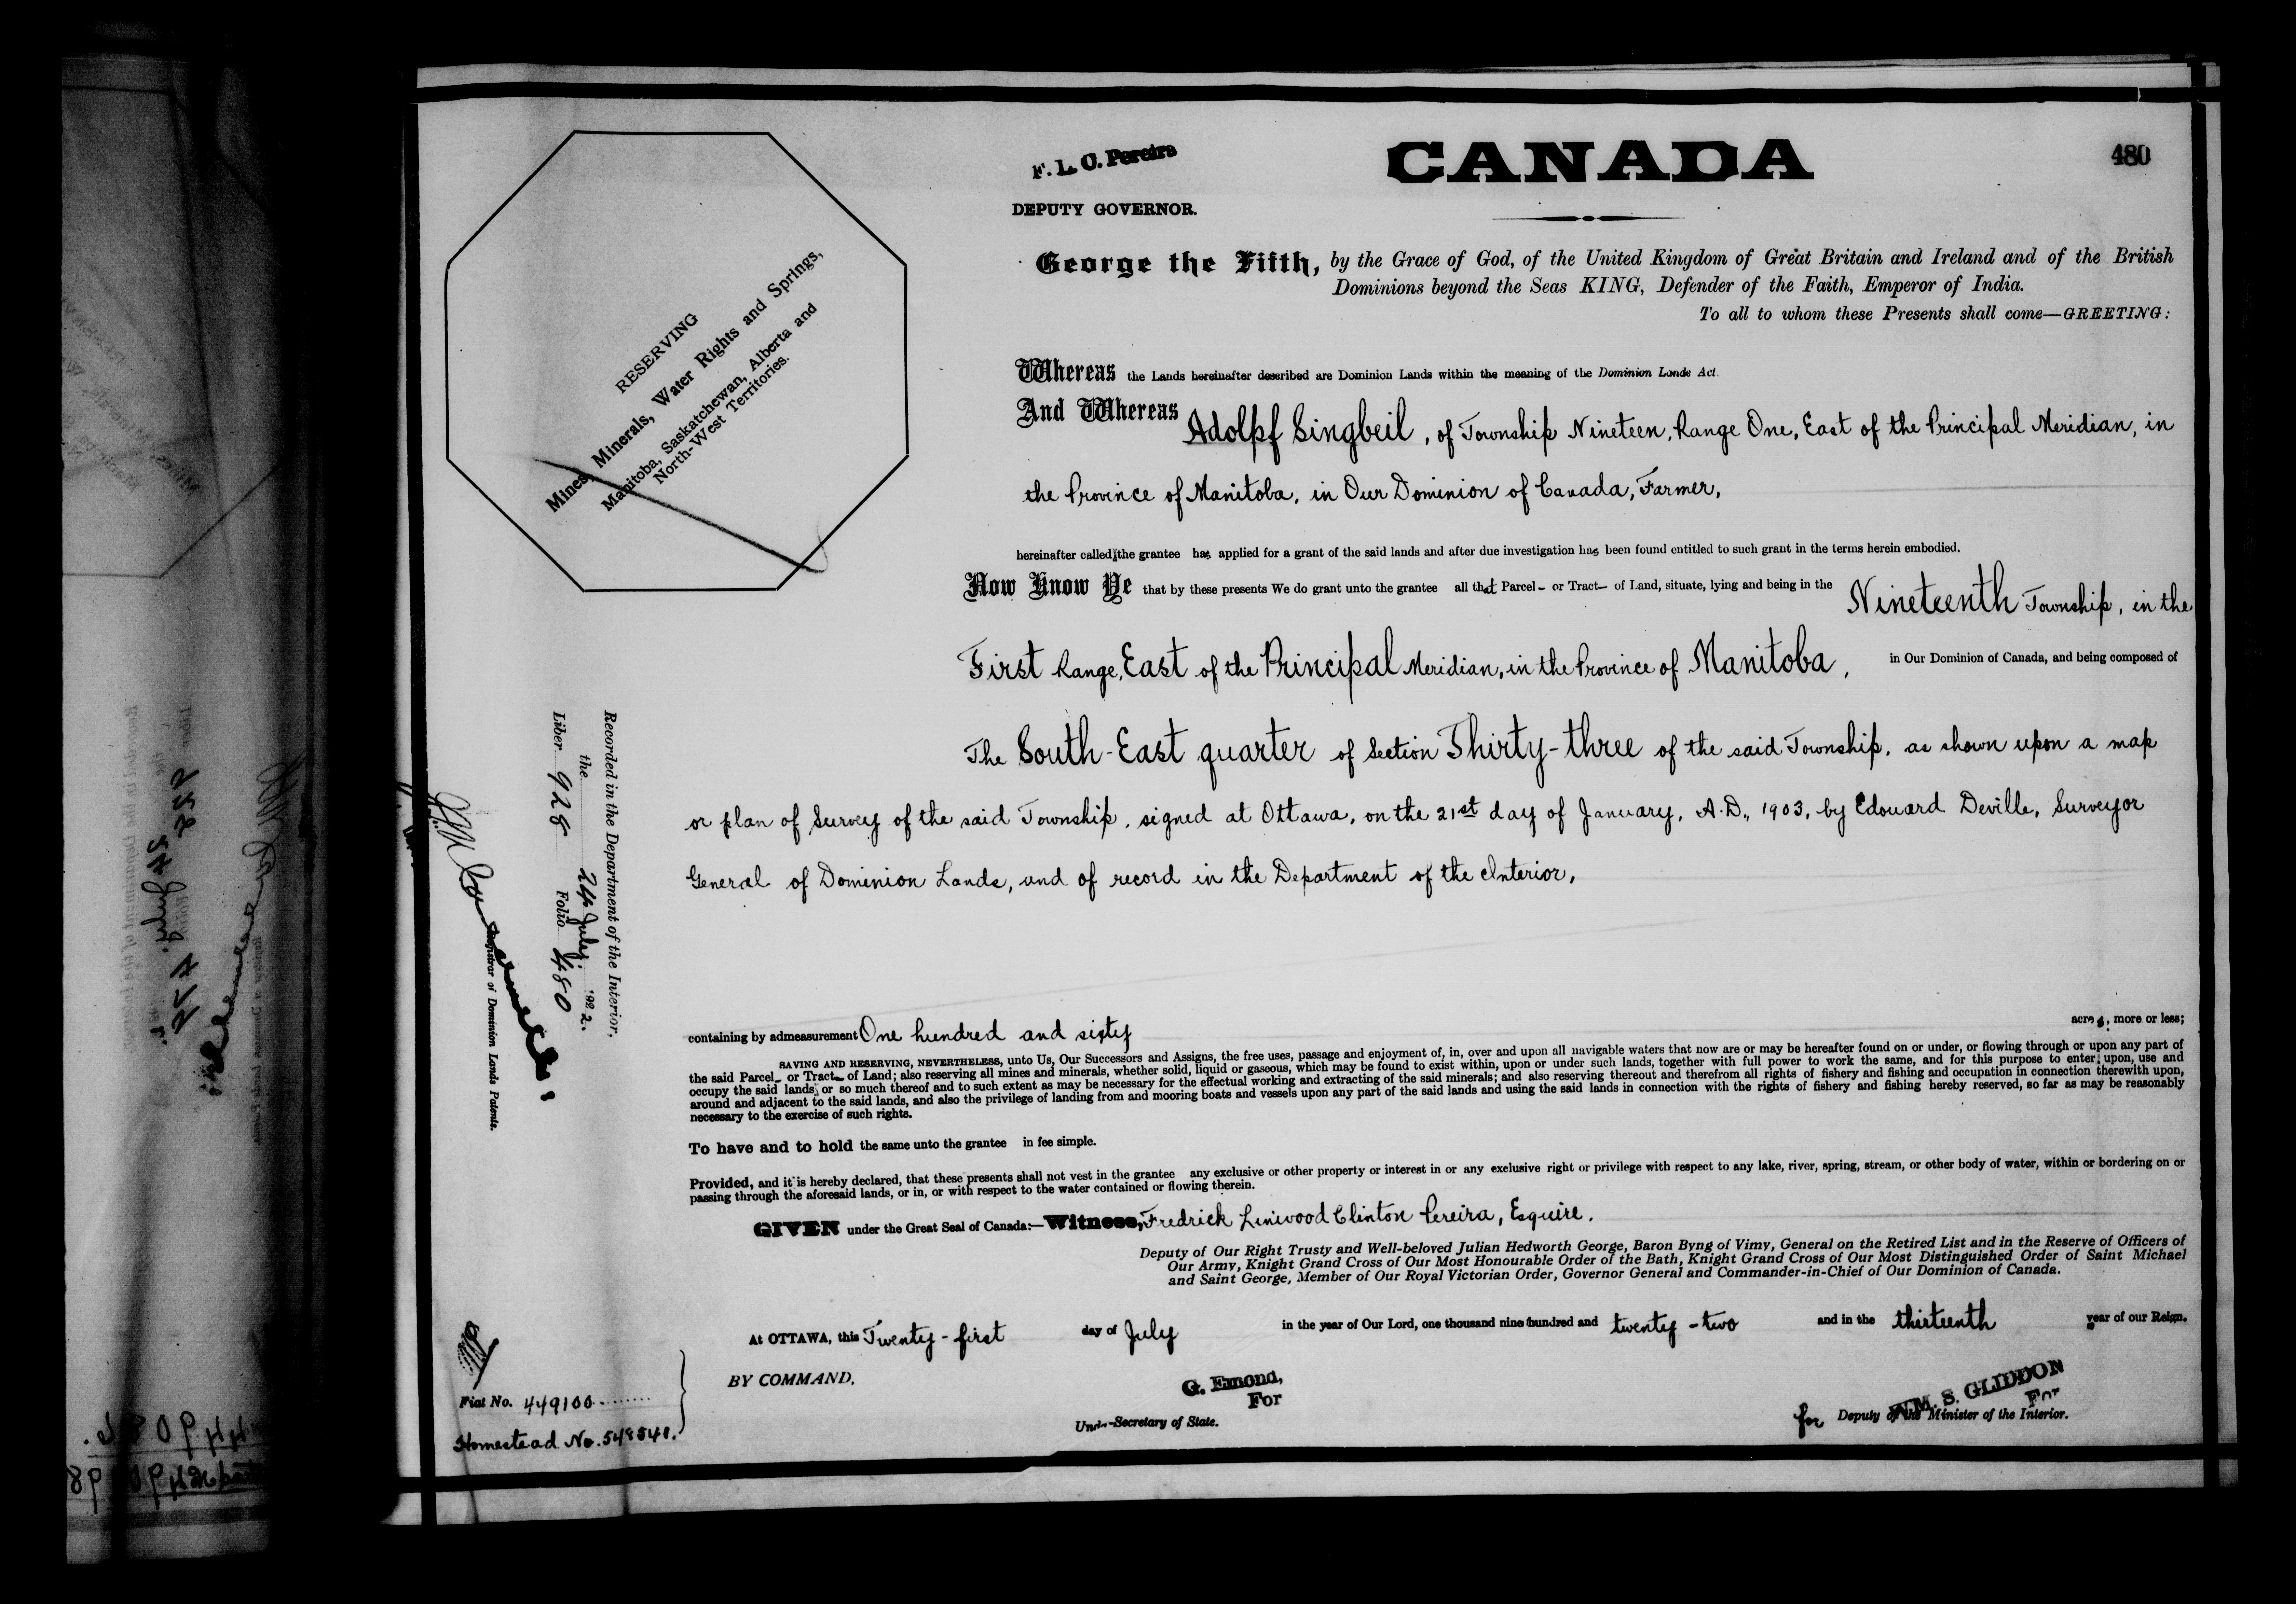 F. L. C. Pereira
DEPUTY GOVERNOR.
CANADA
480
RESERVING
Mines, Minerals, Water Rights and Springs,
Manitoba, Saskatchewan, Alberta and
North-West Territories.
George the Fifth, by the Grace of God, of the United Kingdom of Great Britain and Ireland and of the British
Dominions beyond the Seas KING, Defender of the Faith, Emperor of India.
To all to whom these Presents shall come—GREETING:
Whereas the Lands hereinafter described are Dominion Lands within the meaning of the Dominion Lands Act.
And Whereas Adolpf Singbeil, of Township Nineteen, Range One, East of the Principal Meridian, in
the Province of Manitoba, in Our Dominion of Canada, Farmer,
hereinafter called the grantee has applied for a grant of the said lands and after due investigation has been found entitled to such grant in the terms herein embodied.
Now Know Ye that by these presents We do grant unto the grantee all that Parcel - or Tract - of Land, situate, lying and being in the Nineteenth Township, in the
First Range, East of the Principal Meridian, in the Province of Manitoba, in Our Dominion of Canada, and being composed of
The South-East quarter of Section Thirty-three of the said Township, as shown upon a map
or plan of Survey of the said Township, signed at Ottawa, on the 21st day of January, A.D., 1903, by Edouard Deville, Surveyor
General of Dominion Lands, and of record in the Department of the Interior,
containing by admeasurement One hundred and sixty acres, more or less;
SAVING AND RESERVING, NEVERTHELESS, unto Us, Our Successors and Assigns, the free uses, passage and enjoyment of, in, over and upon all navigable waters that now are or may be hereafter found on or under, or flowing through or upon any part of
the said Parcel - or Tract - of Land; also reserving all mines and minerals, whether solid, liquid or gaseous, which may be found to exist within, upon or under such lands, together with full power to work the same, and for this purpose to enter upon, use and
occupy the said lands or so much thereof and to such extent as may be necessary for the effectual working and extracting of the said minerals; and also reserving thereout and therefrom all rights of fishery and fishing and occupation in connection therewith upon,
around and adjacent to the said lands, and also the privilege of landing from and mooring boats and vessels upon any part of the said lands and using the said lands in connection with the rights of fishery and fishing hereby reserved, so far as may be reasonably
necessary to the exercise of such rights.
To have and to hold the same unto the grantee in fee simple.
Provided, and it is hereby declared, that these presents shall not vest in the grantee any exclusive or other property or interest in or any exclusive right or privilege with respect to any lake, river, spring, stream, or other body of water, within or bordering on or
passing through the aforesaid lands, or in, or with respect to the water contained or flowing therein.
GIVEN under the Great Seal of Canada:—Witness, Fredrick Linwood Clinton Pereira, Esquire.
Deputy of Our Right Trusty and Well-beloved Julian Hedworth George, Baron Byng of Vimy, General on the Retired List and in the Reserve of Officers of
Our Army, Knight Grand Cross of Our Most Honourable Order of the Bath, Knight Grand Cross of Our Most Distinguished Order of Saint Michael
and Saint George, Member of Our Royal Victorian Order, Governor General and Commander-in-Chief of Our Dominion of Canada.
At OTTAWA, this Twenty-first day of July in the year of Our Lord, one thousand nine hundred and twenty-two and in the thirteenth year of our Reign.
BY COMMAND,
G. Emond,
For
Under-Secretary of State.
WM. S. GLIDDON
For
for Deputy of the Minister of the Interior.
Recorded in the Department of the Interior,
the 24 July, 1922.
Liber 928 Folio 480
Registrar of Dominion Lands Patents.
Fiat No. 449100
Homestead No. 548548.